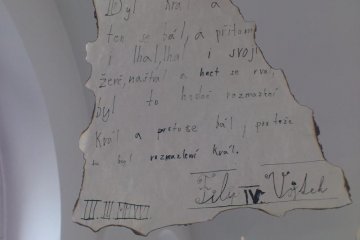 Byl král a
ten se bál, a přitom
i lhal, lhal i svojí
ženě, naštál a hnet se rval,
byl to hodně rozmazlený
Král a proto se bál, protože
to byl rozmazlení Král.
Filip IV Vojtek
III. III. MMVII